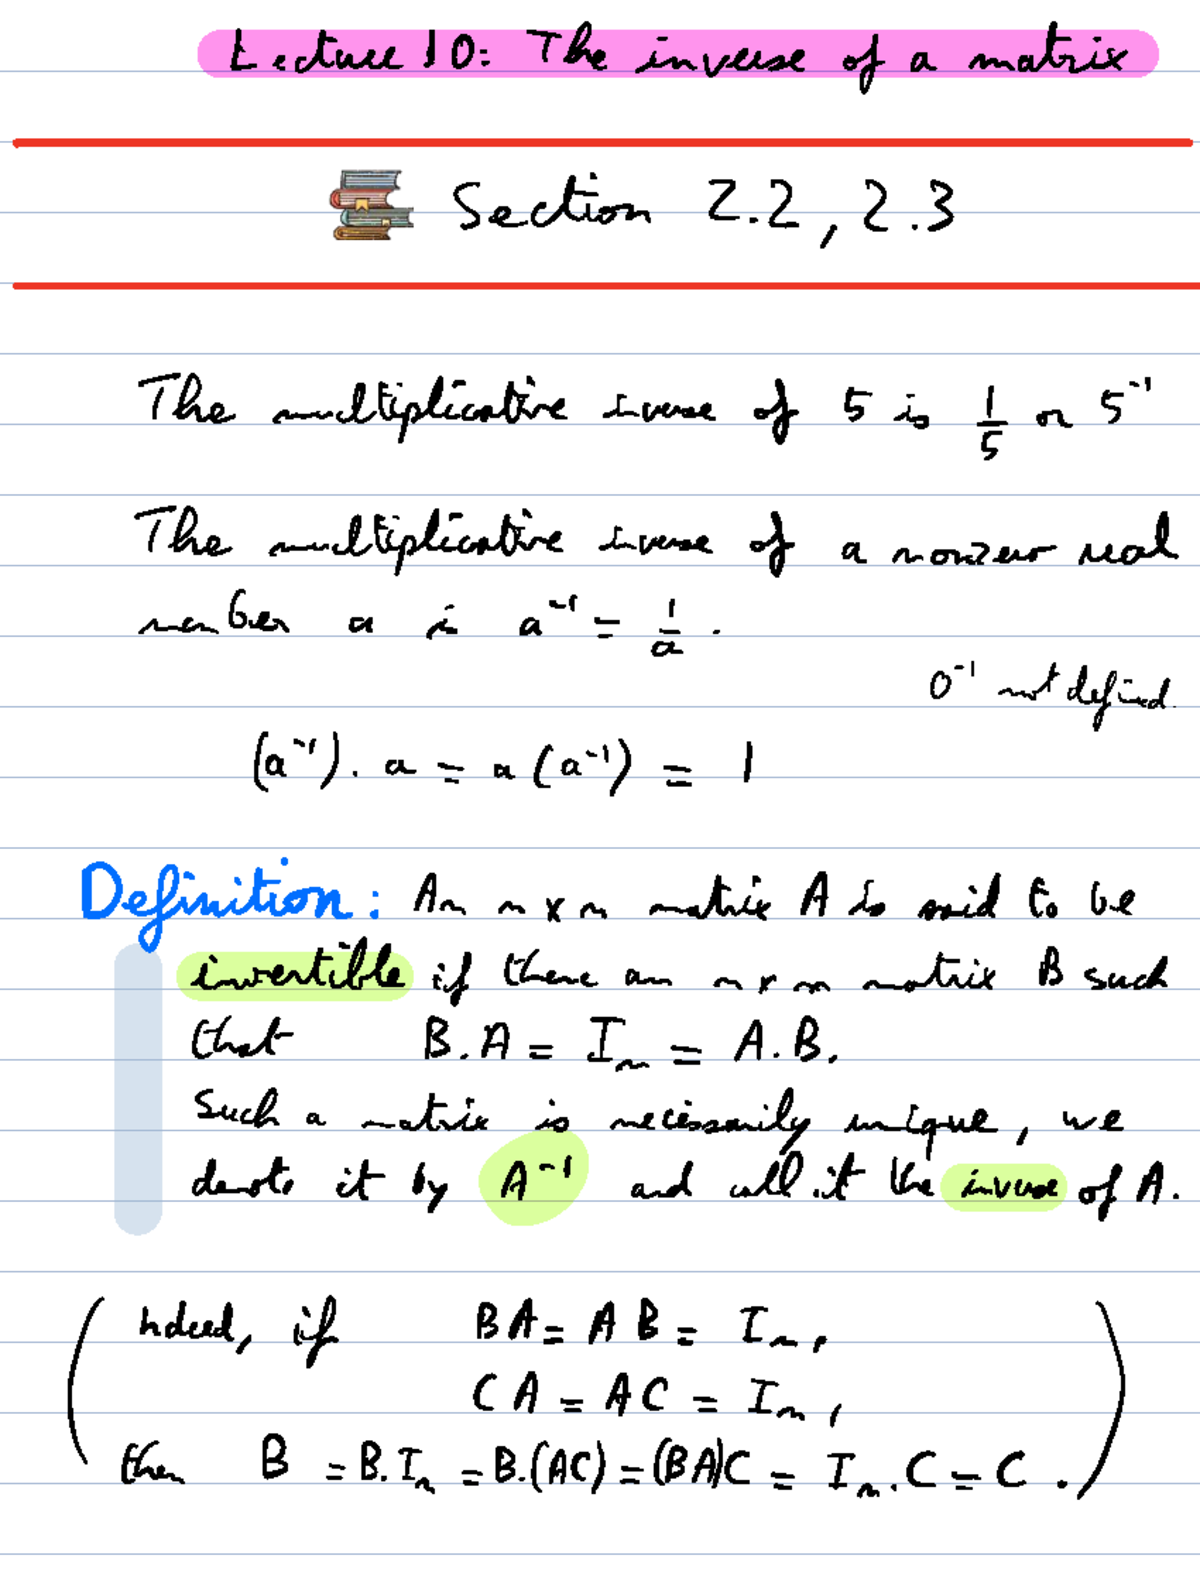 Lecture 10: The inverse of a matrix
Section 2.2, 2.3
The multiplicative inverse of 5 is 1/5 or 5⁻¹
The multiplicative inverse of a nonzero real
number a is a⁻¹ = 1/a .
0⁻¹ not defined.
(a⁻¹). a = a (a⁻¹) = 1
Definition: An n x n matrix A is said to be
invertible if there an n x n matrix B such
that B.A = Iₙ = A.B.
Such a matrix is necessarily unique, we
denote it by A⁻¹ and call it the inverse of A.
(Indeed, if BA = AB = Iₙ,
CA = AC = Iₙ,
then B = B.Iₙ = B.(AC) = (BA)C = Iₙ.C = C .)